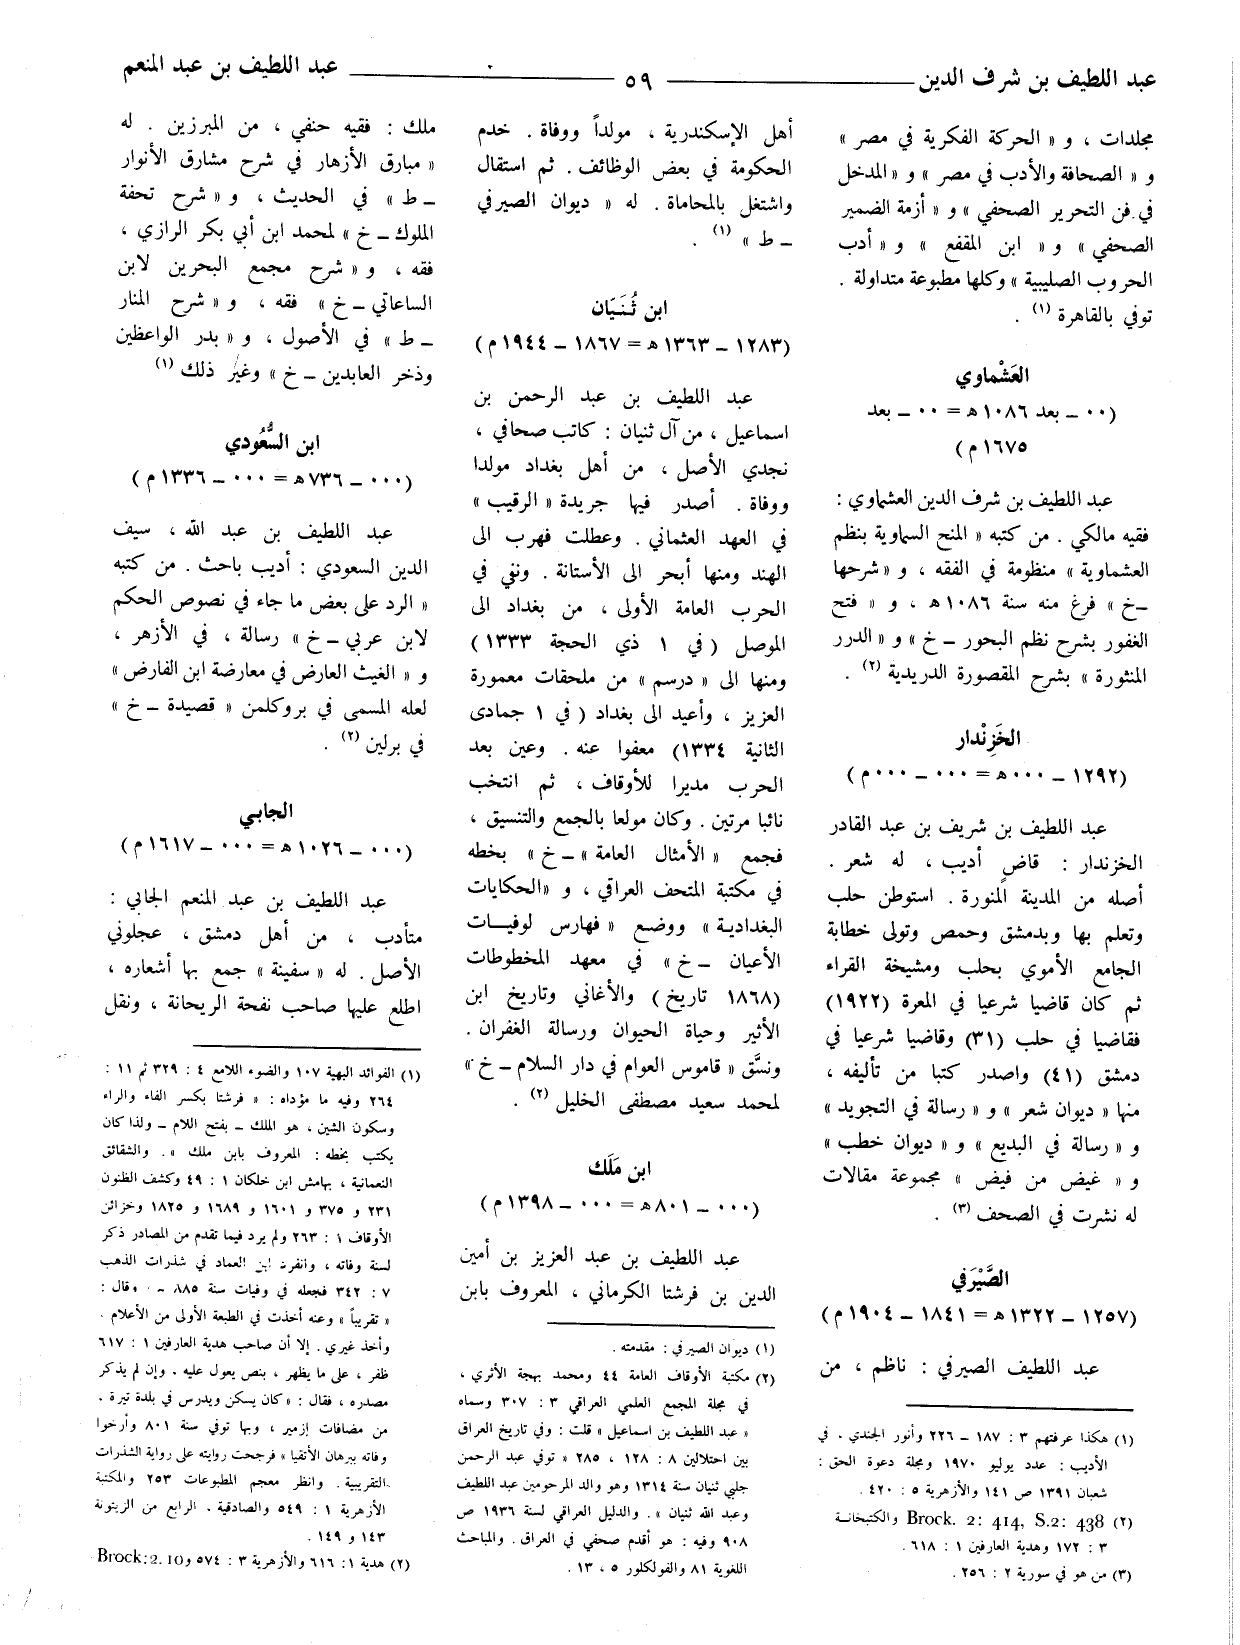 عبد اللطيف بن شرف الدين ٥٩ عبد اللطيف بن عبد المنعم
مجلدات ، و « الحركة الفكرية في مصر »
و « الصحافة والأدب في مصر » و « المدخل
في فن التحرير الصحفي » و « أزمة الضمير
الصحفي » و « ابن المقفع » و « أدب
الحروب الصليبية » وكلها مطبوعة متداولة .
توفي بالقاهرة (١) .
العَشْماوي
(٠٠ ــ بعد ١٠٨٦ هـ = ٠٠ ــ بعد
١٦٧٥ م)
عبد اللطيف بن شرف الدين العشماوي :
فقيه مالكي . من كتبه « المنح السماوية بنظم
العشماوية » منظومة في الفقه ، و « شرحها
ــ خ » فرغ منه سنة ١٠٨٦ هـ ، و « فتح
الغفور بشرح نظم البحور ــ خ » و « الدرر
المنثورة » بشرح المقصورة الدريدية (٢) .
الخَزِنْدار
(١٢٩٢ ــ ٠٠٠ هـ = ٠٠٠ ــ ٠٠٠ م)
عبد اللطيف بن شريف بن عبد القادر
الخزندار : قاضٍ أديب ، له شعر .
أصله من المدينة المنورة . استوطن حلب
وتعلم بها وبدمشق وحمص وتولى خطابة
الجامع الأموي بحلب ومشيخة القراء
ثم كان قاضيا شرعيا في المعرة (١٩٢٢)
فقاضيا في حلب (٣١) وقاضيا شرعيا في
دمشق (٤١) واصدر كتبا من تأليفه ،
منها « ديوان شعر » و « رسالة في التجويد »
و « رسالة في البديع » و « ديوان خطب »
و « غيض من فيض » مجموعة مقالات
له نشرت في الصحف (٣) .
الصَّيْرَفي
(١٢٥٧ ــ ١٣٢٢ هـ = ١٨٤١ ــ ١٩٠٤ م)
عبد اللطيف الصيرفي : ناظم ، من
(١) هكذا عرفتهم ٣ : ١٨٧ ــ ٢٢٦ وأنور الجندي . في
الأديب : عدد يوليو ١٩٧٠ ومجلة دعوة الحق :
شعبان ١٣٩١ ص ١٤١ والأزهرية ٥ : ٤٢٠ .
(٢) Brock. 2: 414, S.2: 438 والكتبخانـة
٣ : ١٧٢ وهدية العارفين ١ : ٦١٨ .
(٣) من هو في سورية ٢ : ٢٥٦ .
أهل الإسكندرية ، مولداً ووفاة . خدم
الحكومة في بعض الوظائف . ثم استقال
واشتغل بالمحاماة . له « ديوان الصيرفي
ــ ط » (١) .
ابن ثُنَيَّان
(١٢٨٣ ــ ١٣٦٣ هـ = ١٨٦٧ ــ ١٩٤٤ م)
عبد اللطيف بن عبد الرحمن بن
اسماعيل ، من آل ثنيان : كاتب صحافي ،
نجدي الأصل ، من أهل بغداد مولدا
ووفاة . أصدر فيها جريدة « الرقيب »
في العهد العثماني . وعطلت فهرب الى
الهند ومنها أبحر الى الأستانة . ونفي في
الحرب العامة الأولى ، من بغداد الى
الموصل ( في ١ ذي الحجة ١٣٣٣ )
ومنها الى « درسم » من ملحقات معمورة
العزيز ، وأعيد الى بغداد ( في ١ جمادى
الثانية ١٣٣٤) معفوا عنه . وعين بعد
الحرب مديرا للأوقاف ، ثم انتخب
نائبا مرتين . وكان مولعا بالجمع والتنسيق ،
فجمع « الأمثال العامة » ــ خ » بخطه
في مكتبة المتحف العراقي ، و «الحكايات
البغدادية » ووضع « فهارس لوفيـات
الأعيان ــ خ » في معهد المخطوطات
(١٨٦٨ تاريخ) والأغاني وتاريخ ابن
الأثير وحياة الحيوان ورسالة الغفران .
ونسَّق « قاموس العوام في دار السلام ــ خ »
لمحمد سعيد مصطفى الخليل (٢) .
ابن مَلَك
(٠٠٠ ــ ٨٠١ هـ = ٠٠٠ ــ ١٣٩٨ م)
عبد اللطيف بن عبد العزيز بن أمين
الدين بن فرشتا الكرماني ، المعروف بابن
(١) ديوان الصيرفي : مقدمته .
(٢) مكتبة الأوقاف العامة ٤٤ ومحمد بهجة الأثري ،
في مجلة المجمع العلمي العراقي ٣ : ٣٠٧ وسماه
« عبد اللطيف بن اسماعيل » قلت : وفي تاريخ العراق
بين احتلالين ٨ : ١٢٨ ، ٢٨٥ « توفي عبد الرحمن
جلبي ثنيان سنة ١٣١٤ وهو والد المرحومين عبد اللطيف
وعبد الله ثنيان » . والدليل العراقي لسنة ١٩٣٦ ص
٩٠٨ وفيه : هو أقدم صحفي في العراق . والمباحث
اللغوية ٨١ والفولكلور ٥ ، ١٣ .
ملك : فقيه حنفي ، من المبرزين . له
« مبارق الأزهار في شرح مشارق الأنوار
ــ ط » في الحديث ، و « شرح تحفة
الملوك ــ خ » لمحمد ابن أبي بكر الرازي ،
فقه ، و « شرح مجمع البحرين لابن
الساعاتي ــ خ » فقه ، و « شرح المنار
ــ ط » في الأصول ، و « بدر الواعظين
وذخر العابدين ــ خ » وغير ذلك (١)
ابن السُّعُودي
(٠٠٠ ــ ٧٣٦ هـ = ٠٠٠ ــ ١٣٣٦ م)
عبد اللطيف بن عبد الله ، سيف
الدين السعودي : أديب باحث . من كتبه
« الرد على بعض ما جاء في نصوص الحكم
لابن عربي ــ خ » رسالة ، في الأزهر ،
و « الغيث العارض في معارضة ابن الفارض »
لعله المسمى في بروكلمن « قصيدة ــ خ »
في برلين (٢) .
الجابي
(٠٠٠ ــ ١٠٢٦ هـ = ٠٠٠ ــ ١٦١٧ م)
عبد اللطيف بن عبد المنعم الجابي :
متأدب ، من أهل دمشق ، عجلوني
الأصل . له « سفينة » جمع بها أشعاره ،
اطلع عليها صاحب نفحة الريحانة ، ونقل
(١) الفوائد البهية ١٠٧ والضوء اللامع ٤ : ٣٢٩ ثم ١١ :
٢٦٤ وفيه ما مؤداه : « فرشتا بكسر الفاء والراء
وسكون الشين ، هو الملك ــ بفتح اللام ــ ولذا كان
يكتب بخطه : المعروف بابن ملك » . والشقائق
النعمانية ، بهامش ابن خلكان ١ : ٤٩ وكشف الظنون
٢٣١ و ٣٧٥ و ١٦٠١ و ١٦٨٩ و ١٨٢٥ وخزائن
الأوقاف ١ : ٢٦٣ ولم يرد فيما تقدم من المصادر ذكر
لسنة وفاته ، وانفرد ابن العماد في شذرات الذهب
٧ : ٣٤٢ فجعله في وفيات سنة ٨٨٥ ــ وقال :
« تقريباً » وعنه أخذت في الطبعة الأولى من الأعلام .
وأخذ غيري . إلا أن صاحب هدية العارفين ١ : ٦١٧
ظفر ، على ما يظهر ، بنص يعول عليه . وإن لم يذكر
مصدره ، فقال : « كان يسكن ويدرس في بلدة تيرة .
من مضافات إزمير ، وبها توفي سنة ٨٠١ وأرخوا
وفاته ببرهان الأتقيا » فرجحت روايته على رواية الشذرات
التقريبية . وانظر معجم المطبوعات ٢٥٣ والمكتبة
الأزهرية ١ : ٥٤٩ والصادقية . الرابع من الزيتونة
١٤٣ و ١٤٩ .
(٢) هدية ١ : ٦١٦ والأزهرية ٣ : ٥٧٤ و Brock:2. 10